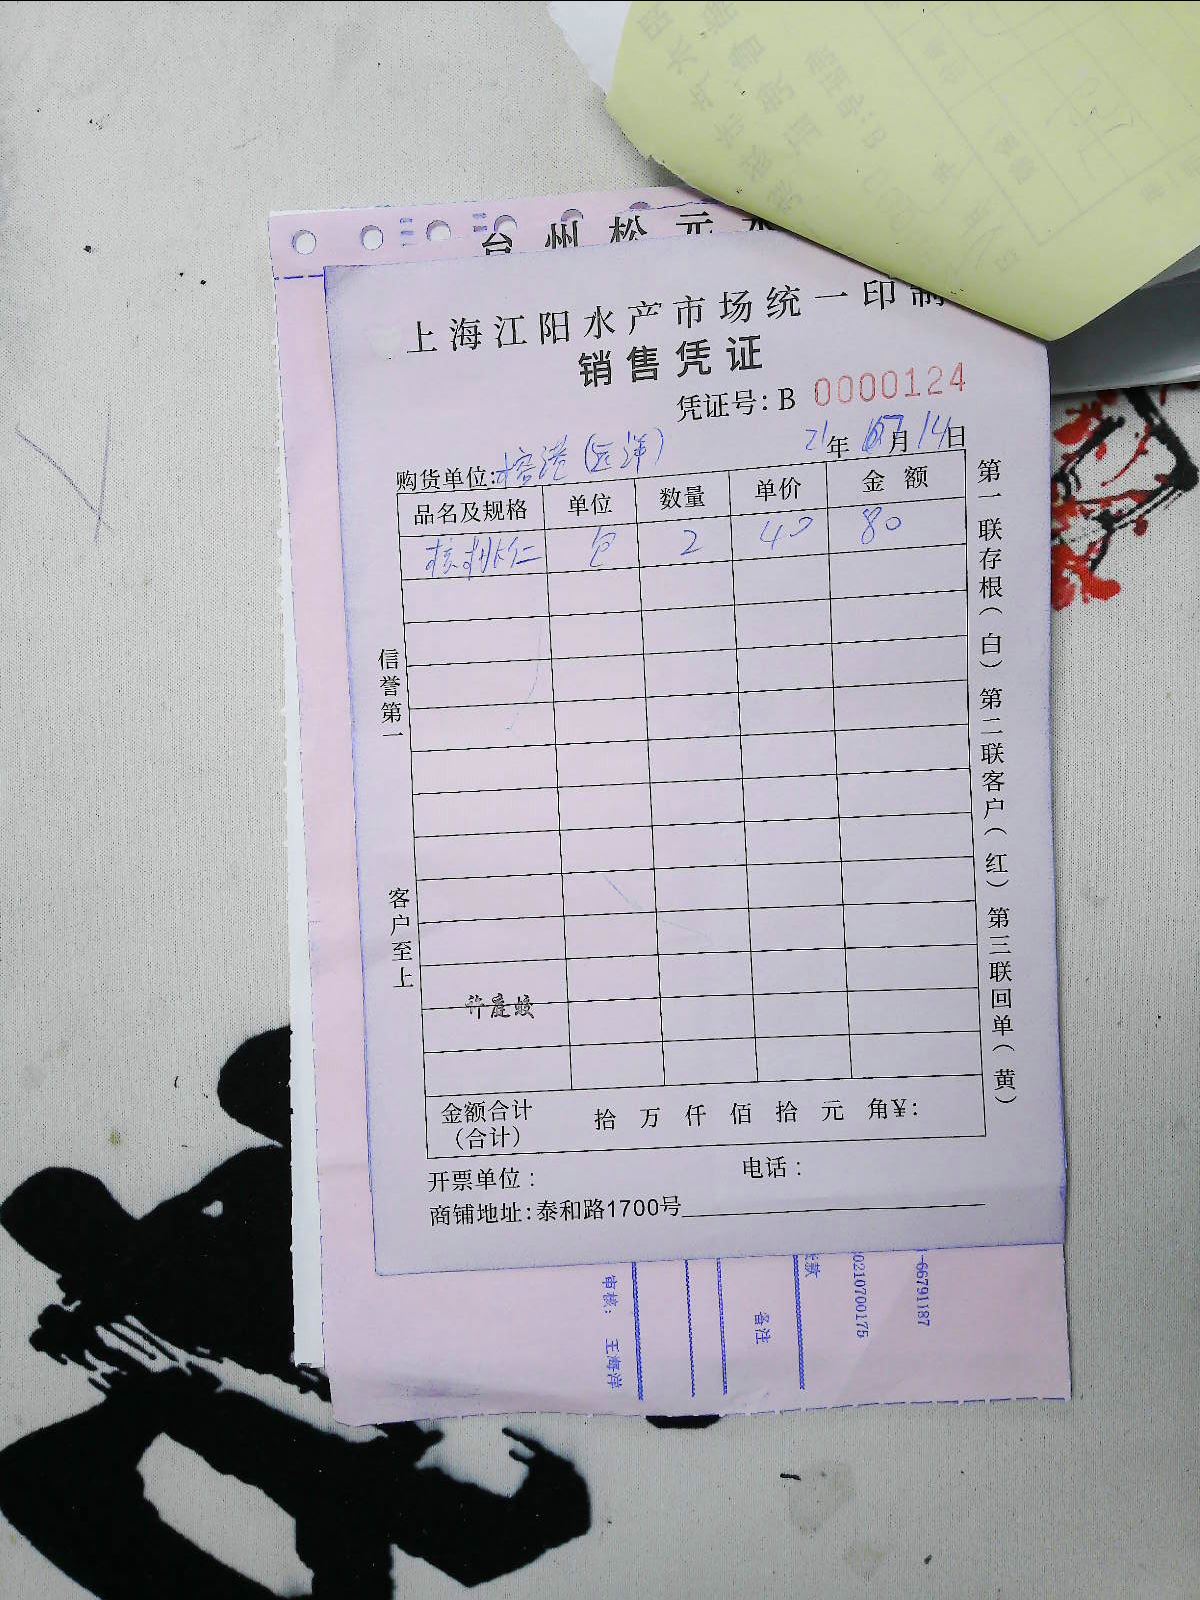 台州松元水
上海江阳水产市场统一印制
销售凭证
凭证号：B 0000124
购货单位：榕港（远洋） 21年 07月14日
品名及规格 单位 数量 单价 金额
核桃仁 包 2 40 80
信誉第一
客户至上
第一联存根（白）第二联客户（红）第三联回单（黄）
金额合计（合计） 拾 万 仟 佰 拾 元 角¥：
开票单位： 电话：
商铺地址：泰和路1700号
审核： 王海洋
备注
30210700175
-66791187